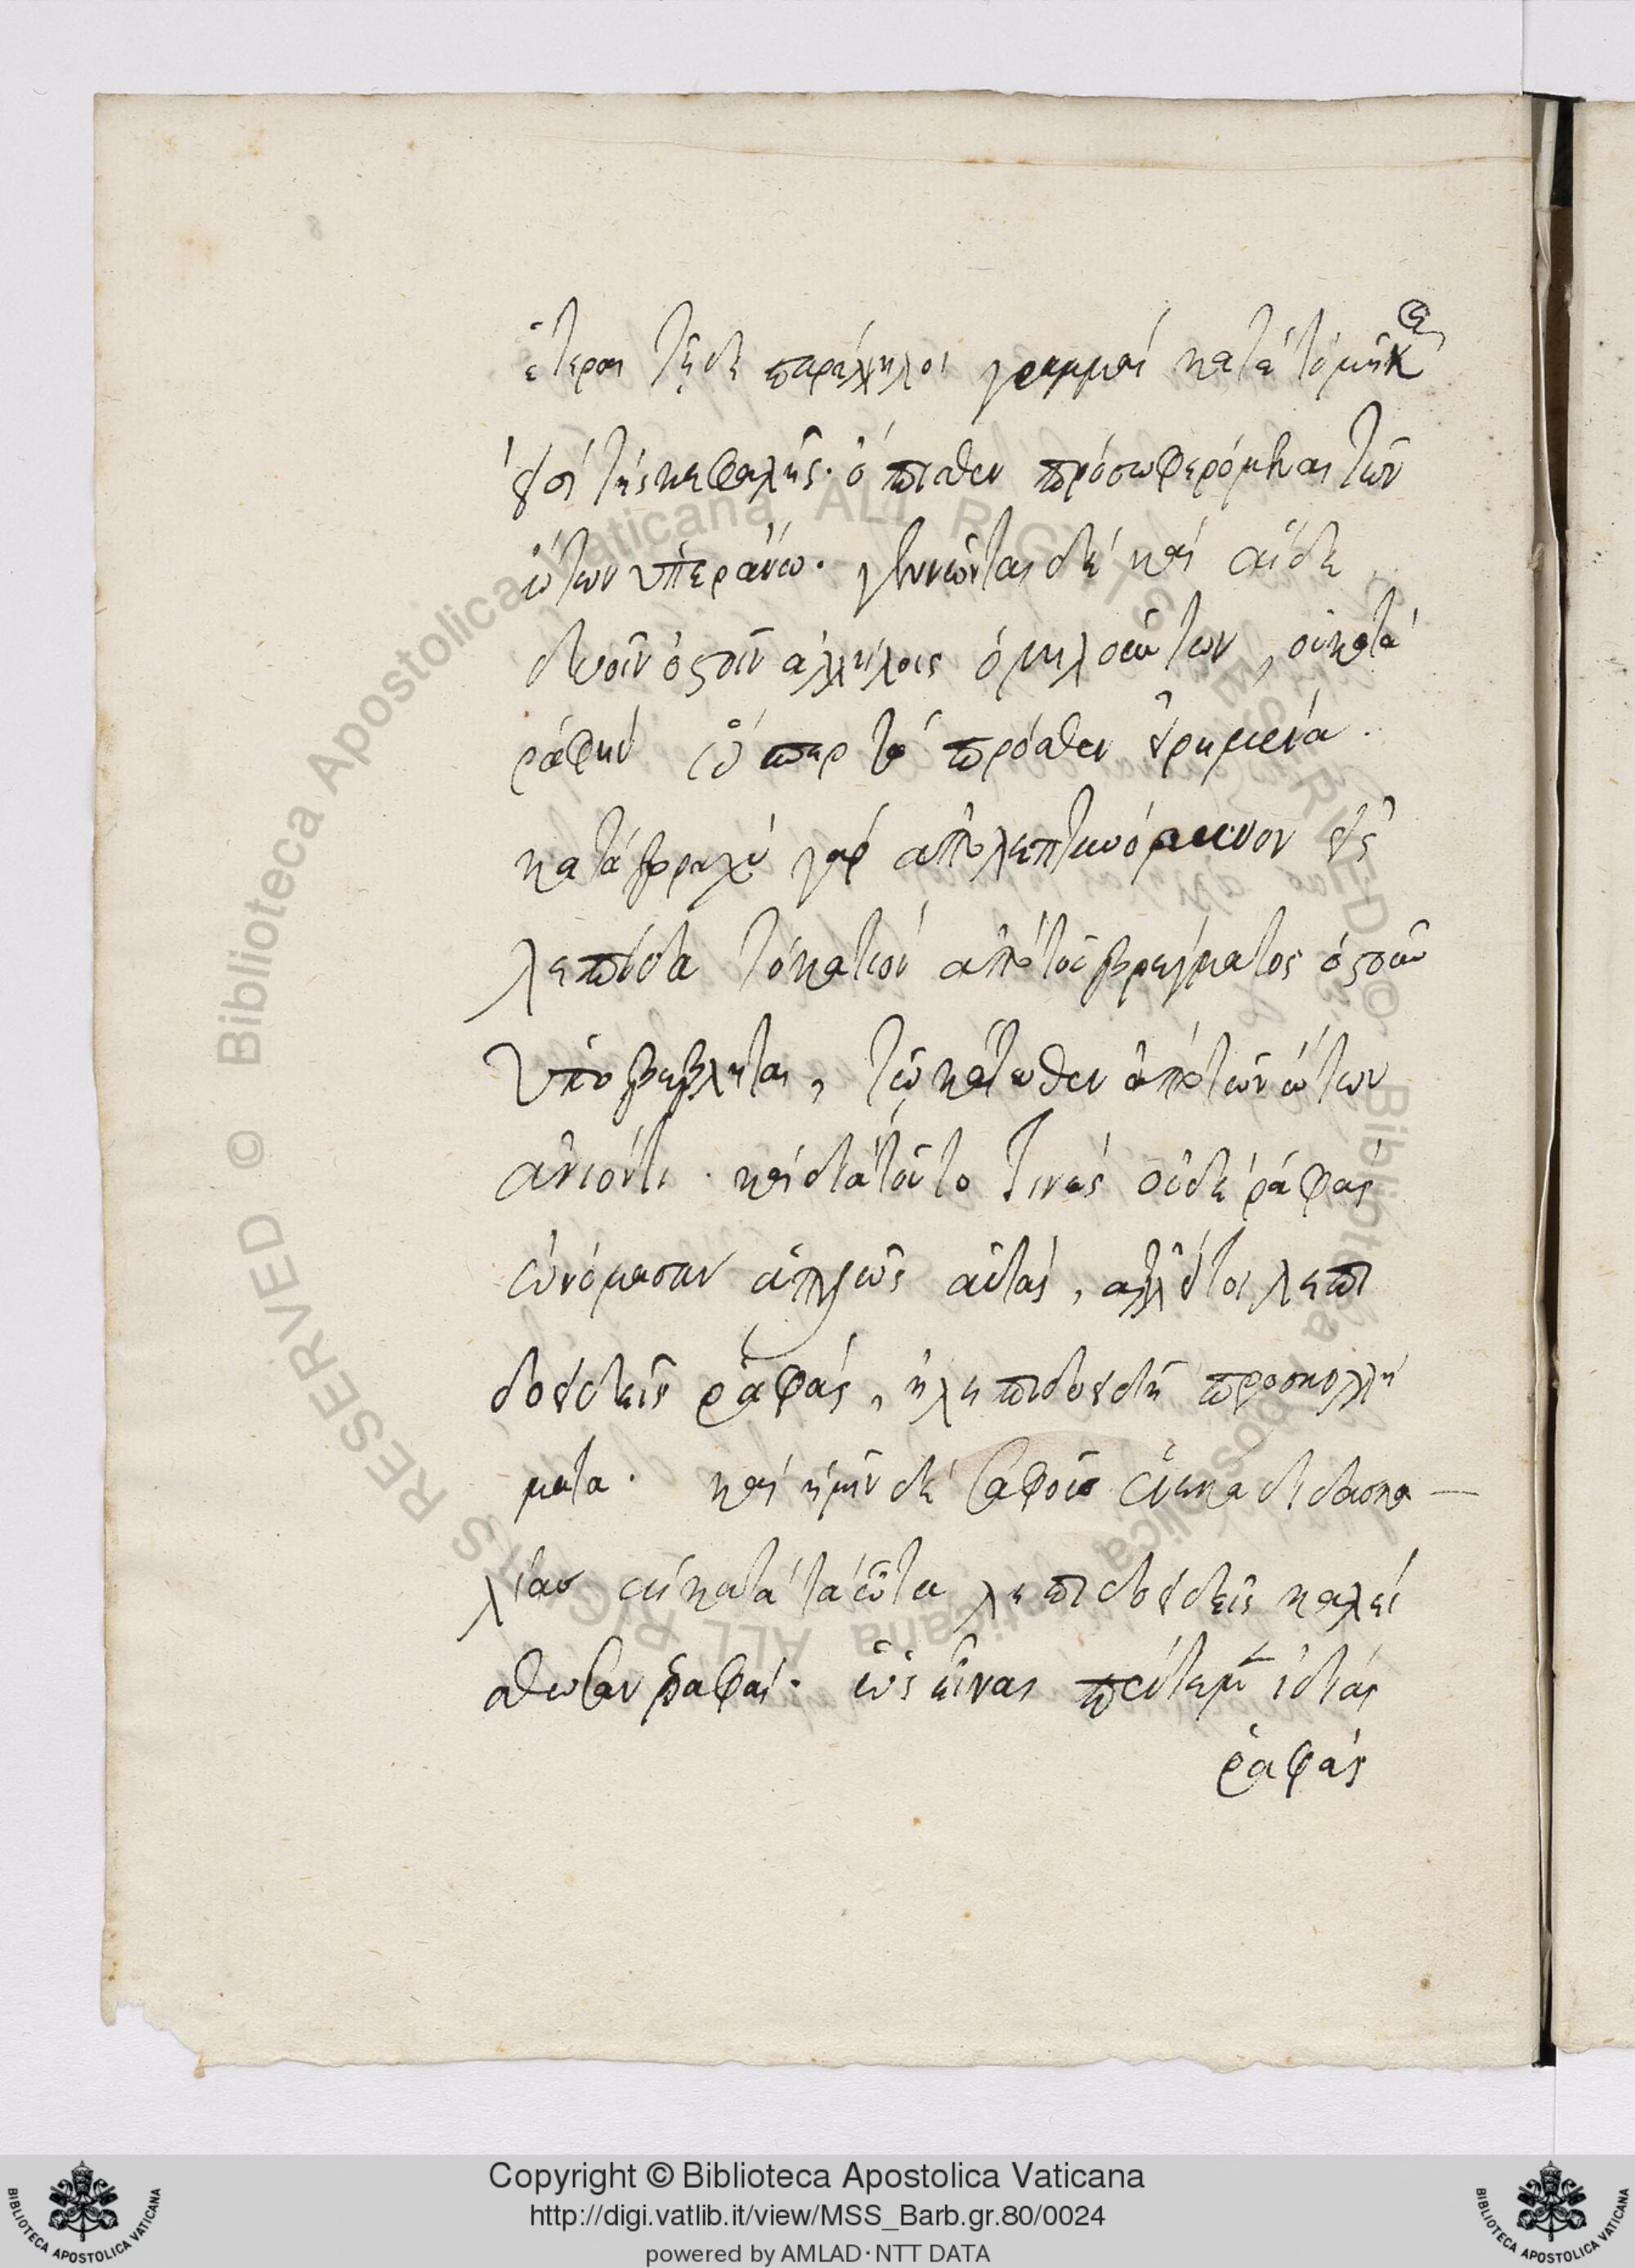 ἕτεραι τῇδε παράλληλοι γραμμαὶ κατὰ τὸ μῆκ
εἰσὶ τῆς κεφαλῆς· ὄπισθεν πρόσω φερόμεναι τῶν
ὤτων ὑπεράνω. γεννῶνται δὲ καὶ αἵδε
δυοῖν ὀστοῖν ἀλλήλοις ὁμιλούντων, οὐ κατὰ
ῥαφὴν ὥσπερ τὰ πρόσθεν εἰρημένα.
κατὰ βραχὺ γὰρ ἀπολεπτυνόμενον εἰς
λεπίδα τὸ κατιὸν ἀπὸ τοῦ βρέγματος ὀστοῦν
ὑποβέβληται, τῷ κάτωθεν ἀπὸ τῶν ὤτων
ἀνιόντι. καὶ διὰ τοῦτο τινὲς οὐδὲ ῥαφὰς
ὠνόμασαν ἁπλῶς αὐτὰς, ἀλλ' ἤτοι λεπι
δοειδεῖς ῥαφὰς, ἢ λεπιδοειδῆ προσκολλή
ματα. καὶ ἡμῖν δὲ σαφοῦς ἕνεκα διδασκα
λίας αἱ κατὰ τὰ ὦτα λεπιδοειδεῖς καλεί
σθωσαν ῥαφαί. ὡς εἶναι πέντε μὲν ἰδίας
ῥαφὰς
Copyright © Biblioteca Apostolica Vaticana
http://digi.vatlib.it/view/MSS_Barb.gr.80/0024
powered by AMLAD·NTT DATA